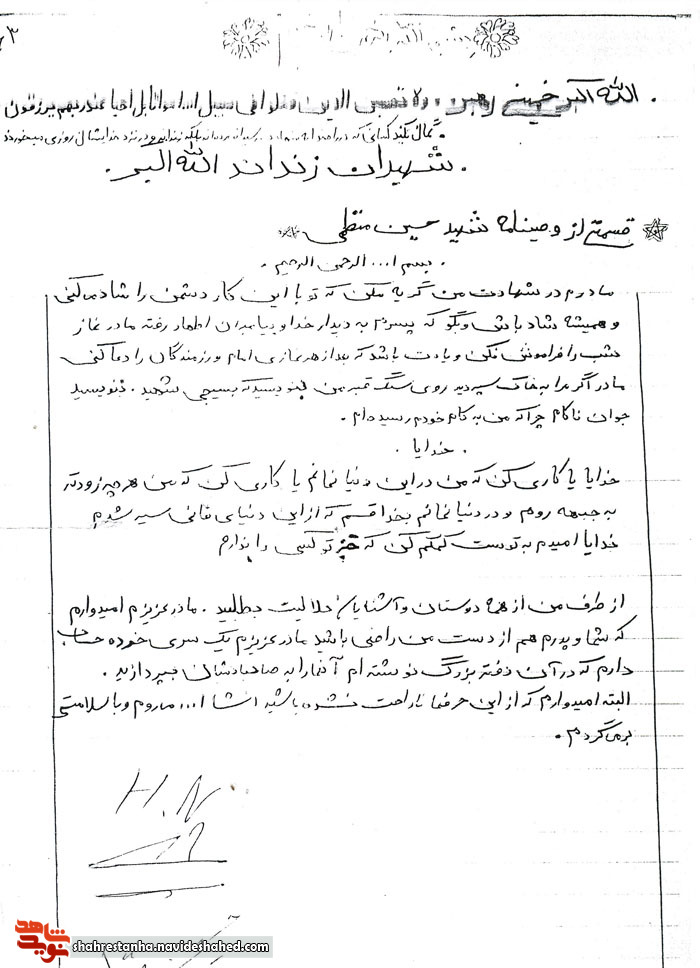 ۳
. الله اکبر خمینی رهبر . ولا تحسبن الذین قتلوا فی سبیل الله امواتا بل احیا عند ربهم یرزقون
. گمان نکنید کسانی که در راه خدا مرده‌اند بلکه زنده‌اند و در نزد خدایشان روزی میخورند
. شهیدان زنده اند الله اکبر .
قسمتی از وصیتنامه شهید حسین
. بسم ا... الرحمن الرحیم .
مادرم در شهادت من گریه مکن که تو با این کار دشمن را شاد میکنی
و همیشه شاد باش و بگو که پسرم به دیدار خدا و پیامبران اطهار رفته مادر نماز
شب را فراموش نکن و یادت باشد که بعد از هر نمازی امام و رزمندگان را دعا کنی
مادر اگر مرا به خاک سپردید روی سنگ قبر من بنویسید که بسیجی شهید . ننویسید
جوان ناکام چرا که من به کام خودم رسیده‌ام .
. خدایا .
خدایا یا کاری کن که من در این دنیا نمانم یا کاری کن که من هر چه زودتر
به جبهه روم و در دنیا نمانم بخدا قسم که از این دنیای فانی سیر شدم
خدایا امیدم به توست کمکم کن که جز تو کسی را ندارم
از طرف من از همه دوستان و آشنایان حلالیت بطلبید . مادر عزیزم امیدوارم
که شما و پدرم هم از دست من راضی باشید مادر عزیزم یک سری خورده حساب
دارم که در آن دفتر بزرگ نوشته ام آنها را به صاحبانشان بپردازید .
البته امیدوارم که از این حرفها ناراحت نشده باشید انشا ا... میروم و با سلامتی
برمی گردم .
H.N
نوید شاهد
shahrestanha.navideshahed.com